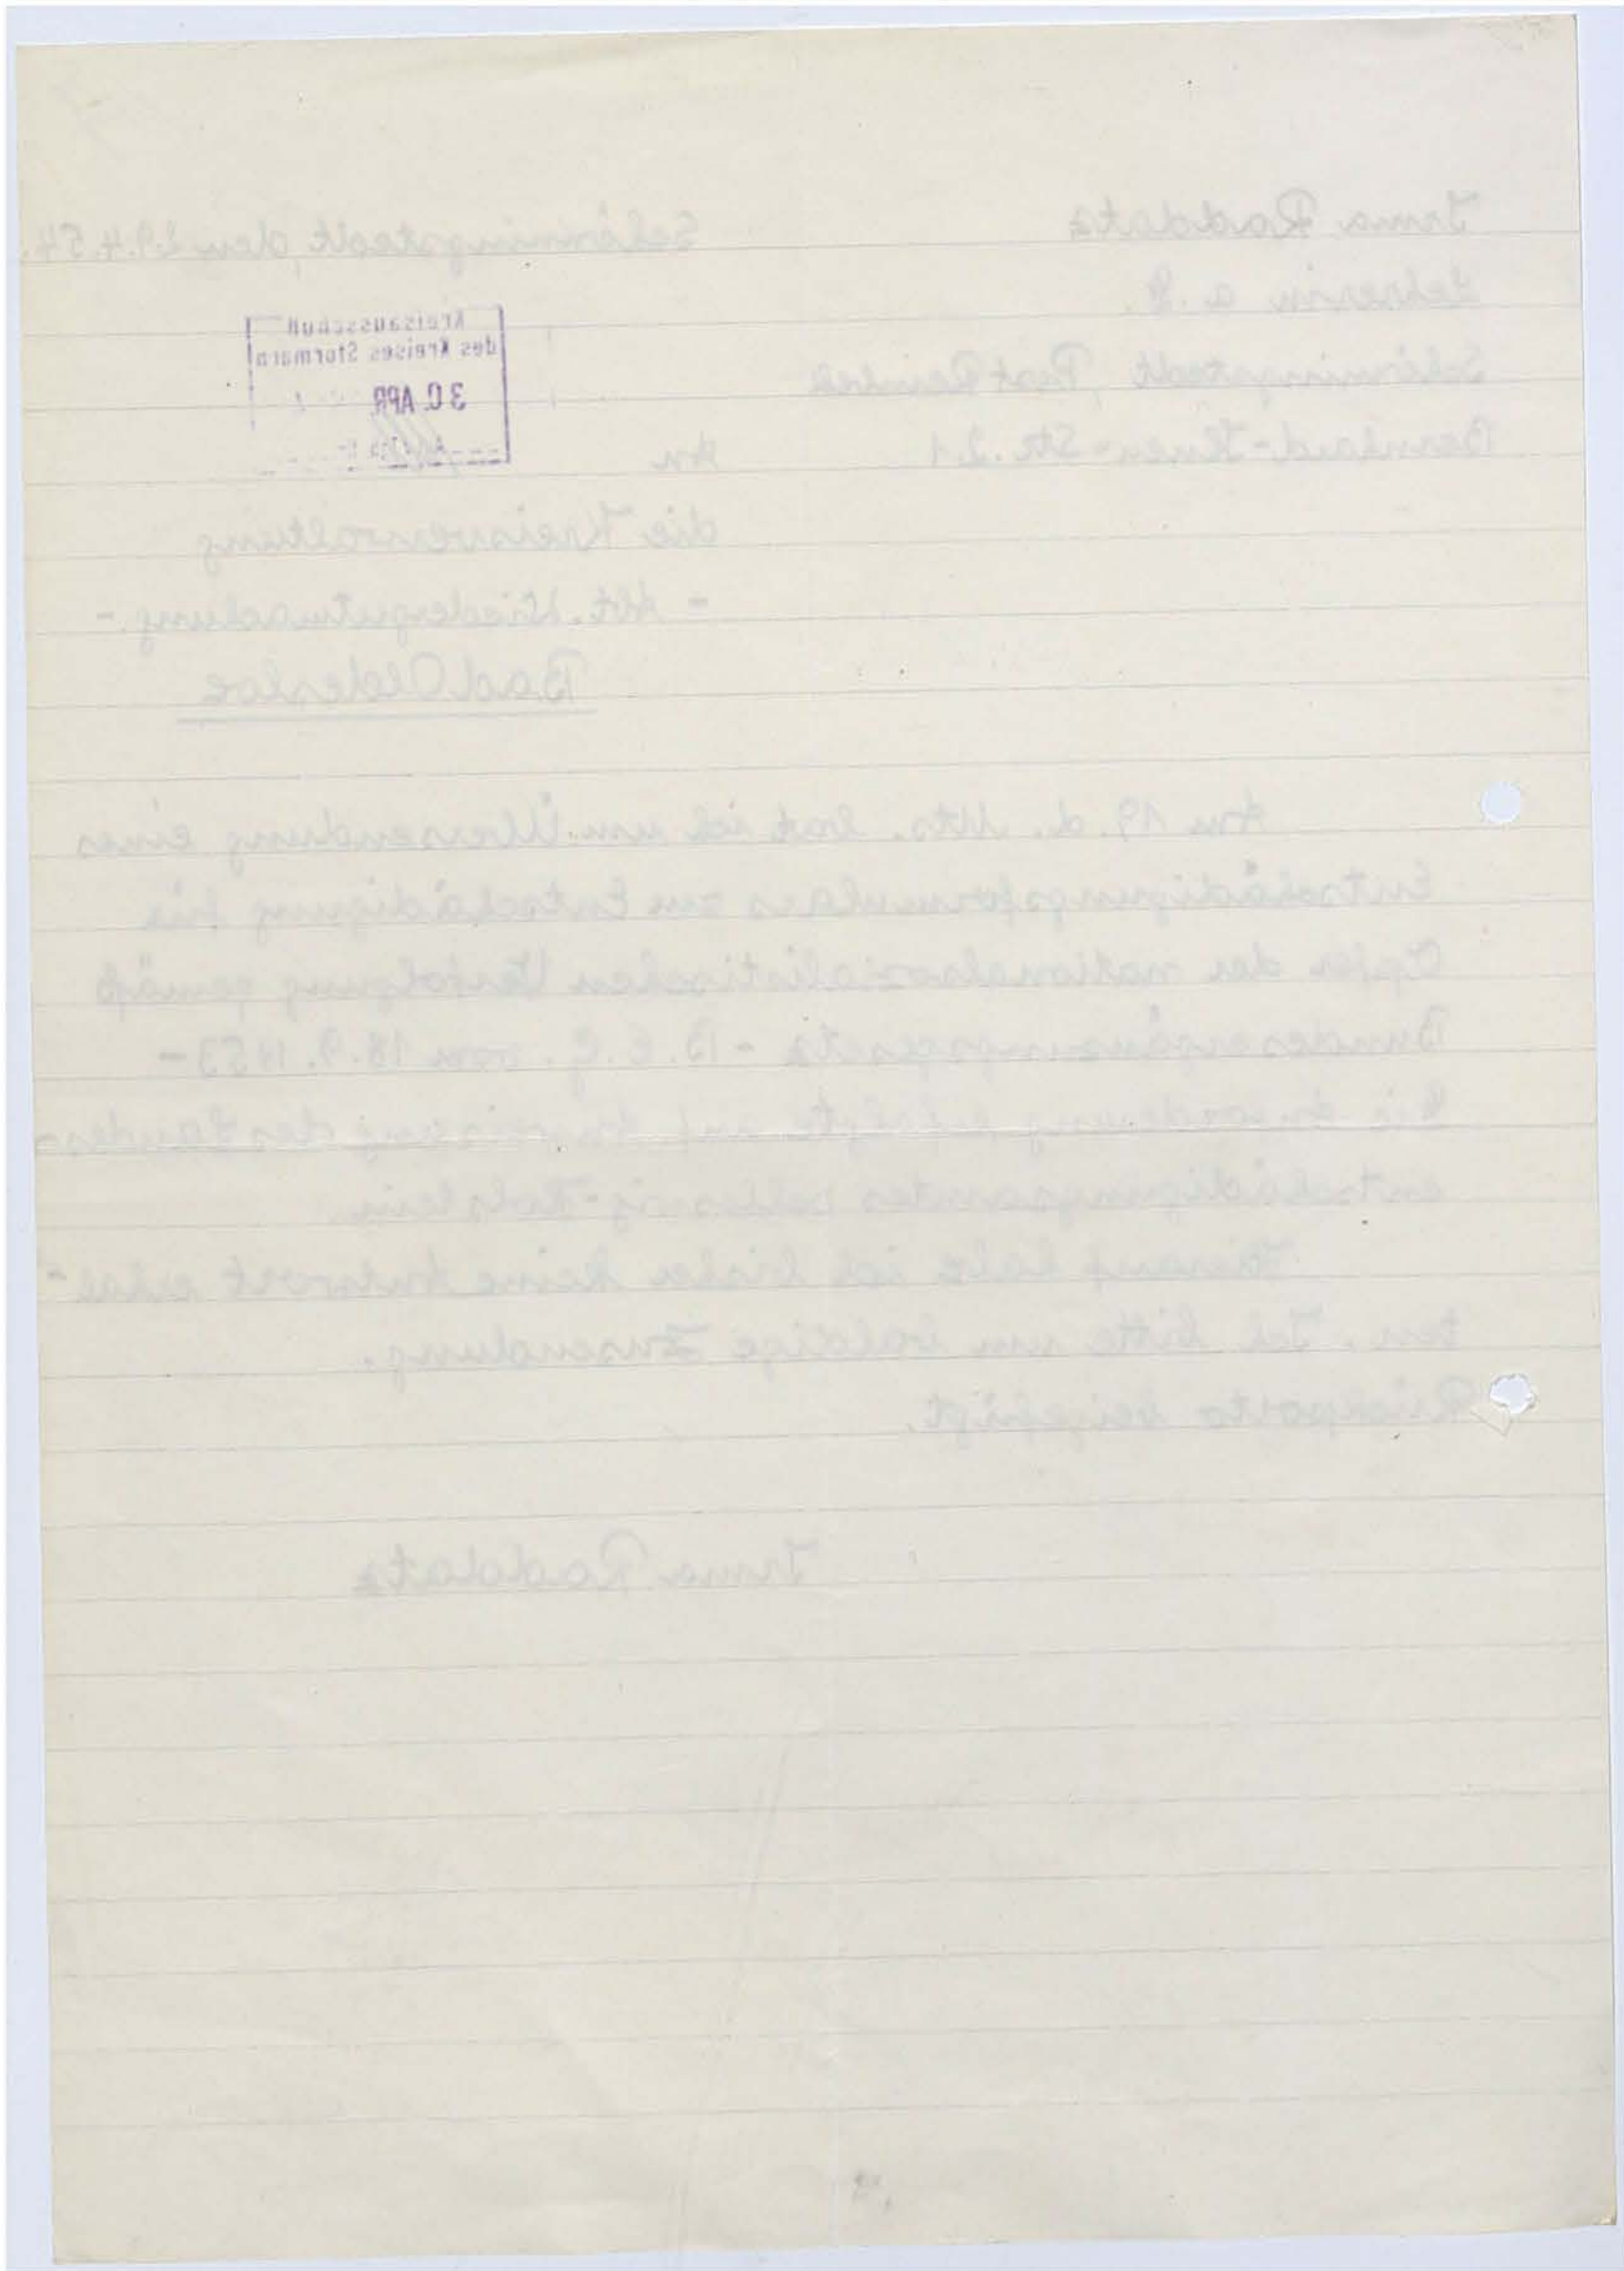 Irma Raddatz
Schönningstedt, den 29.4.54.
Lehrerin a. D.
Kreisausschuß
des Kreises Stormarn
30. APR.
Schönningstedt, Post Reinbek
Bernhard-Ihnen-Str. 21
An
die Kreisverwaltung
- Abt. Wiedergutmachung -
Bad Oldesloe
Am 19. d. Mts. bat ich um Übersendung eines
Entschädigungsformulars zur Entschädigung für
Opfer der nationalsozialistischen Verfolgung gemäß
Bundesergänzungsgesetz - B. E. G. vom 18.9.1953 -
Die Anforderung erfolgte auf Anweisung des Landes-
entschädigungsamtes Schleswig-Holstein.
Hierauf habe ich bisher keine Antwort erhal-
ten. Ich bitte um baldige Zusendung.
Rückporto beigefügt.
Irma Raddatz